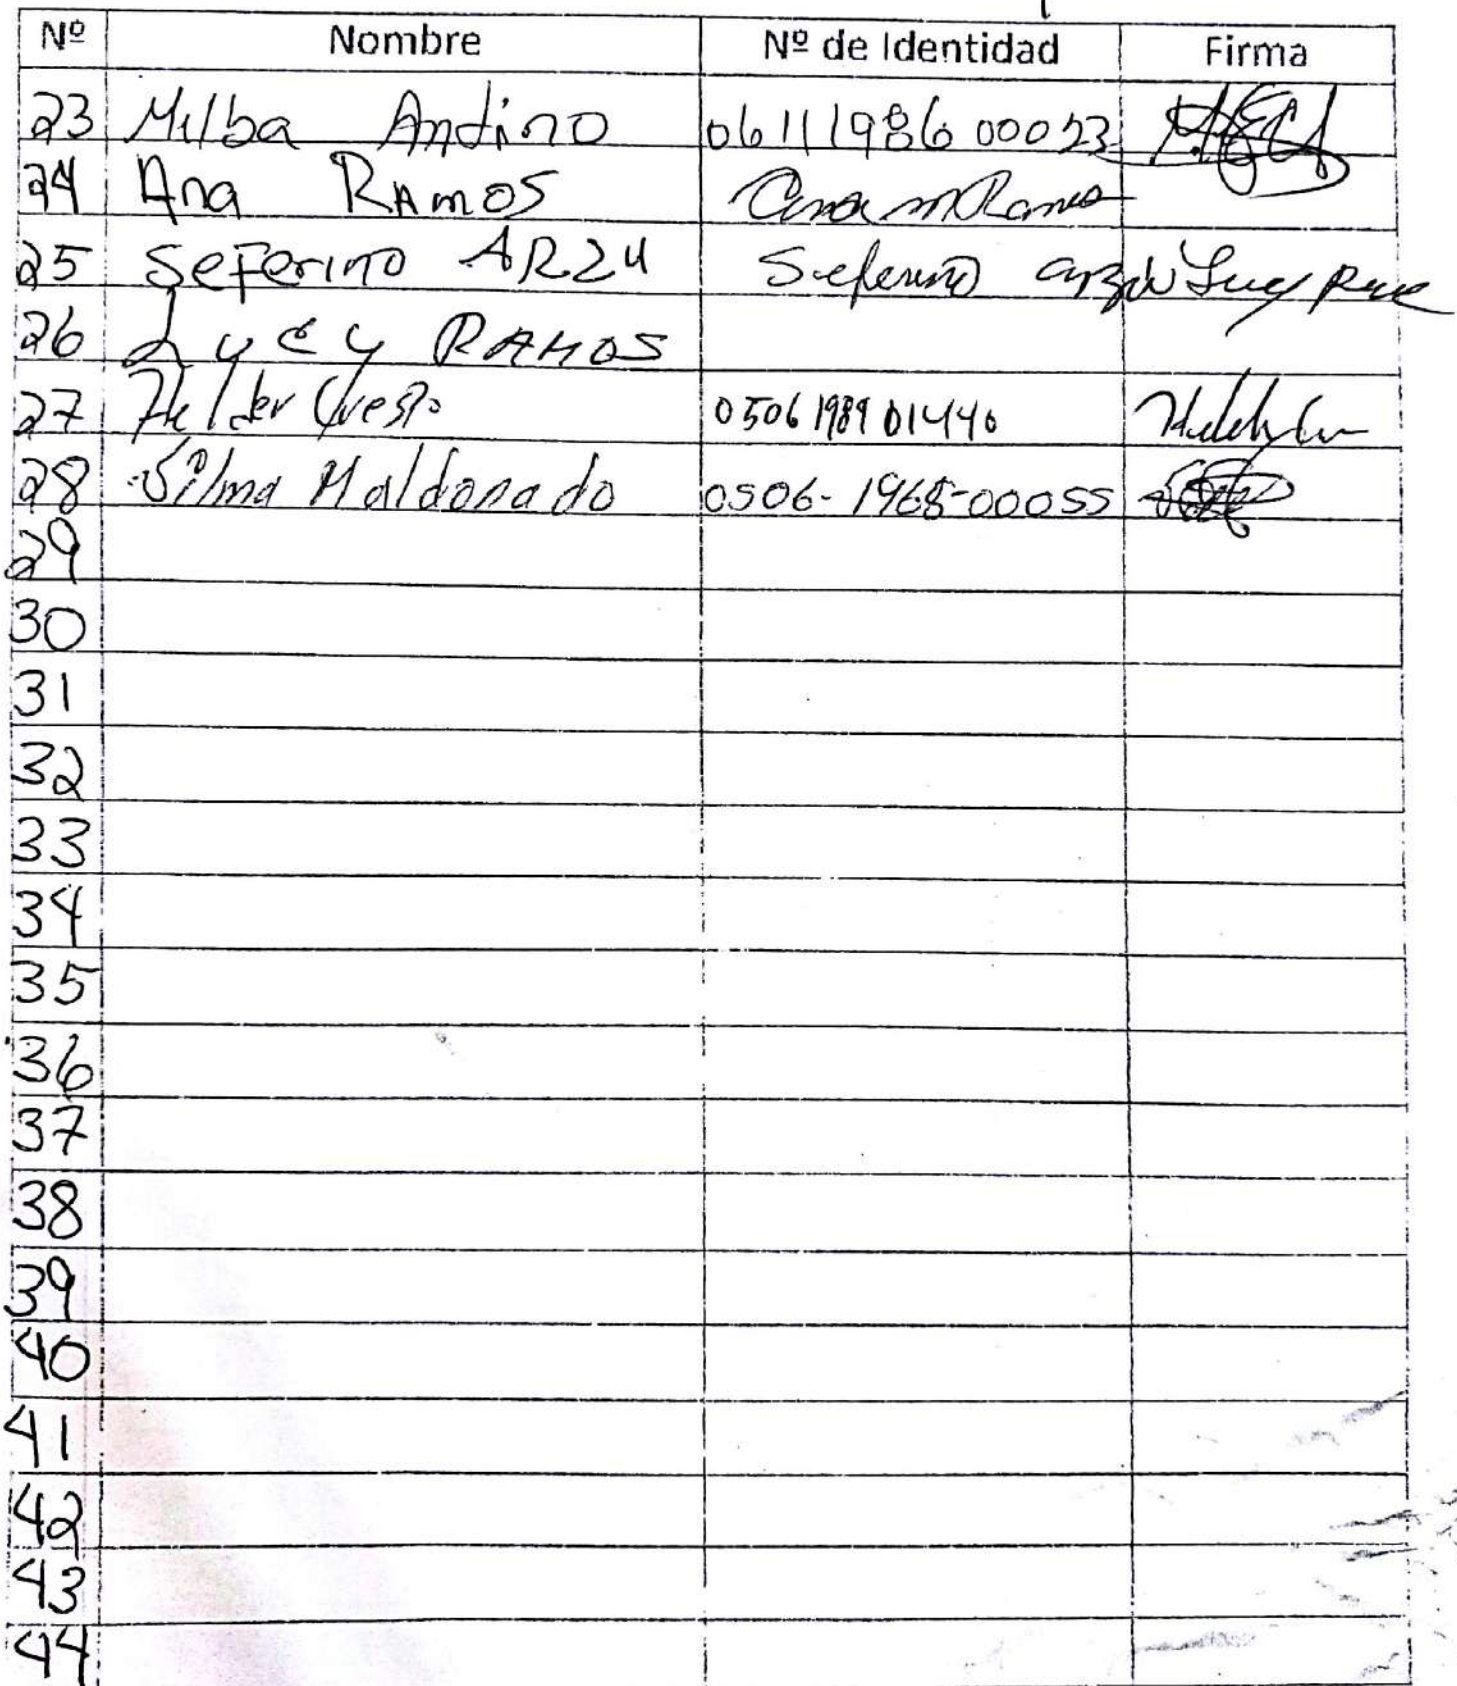 Nº Nombre Nº de Identidad Firma
23 Milba Andino 0611198600023
24 Ana RAMOS Ana m Ramos
25 Seferino ARZU Seferino Arzú Lucy
26 Lucy RAMOS
27 Helder Crespo 0506198901440
28 Silma Maldonado 0506-1968-00055
29
30
31
32
33
34
35
36
37
38
39
40
41
42
43
44